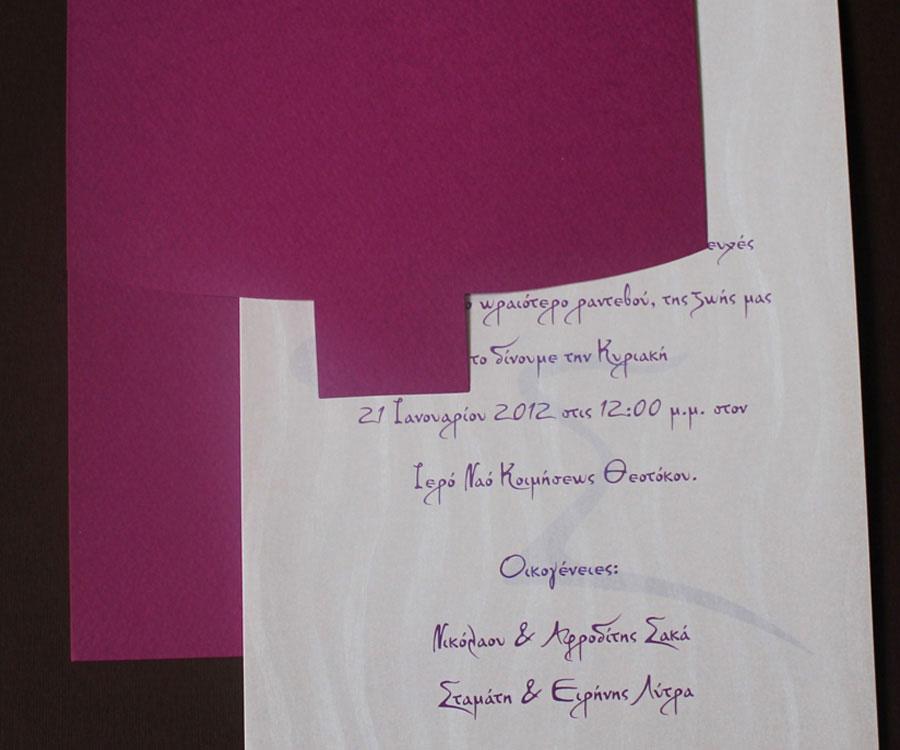 ευχές
ωραιότερο ραντεβού, της ζωής μας
το δίνουμε την Κυριακή
21 Ιανουαρίου 2012 στις 12:00 μ.μ. στον
Ιερό Ναό Κοιμήσεως Θεοτόκου.
Οικογένειες:
Νικόλαου & Αφροδίτης Σακά
Σταμάτη & Ειρήνης Λύτρα